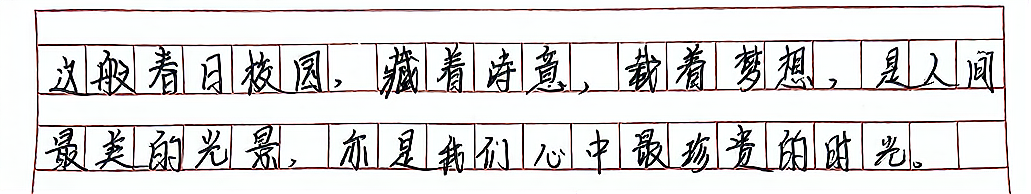 这般春日校园，藏着诗意，载着梦想，是人间
最美的光景，亦是我们心中最珍贵的时光。